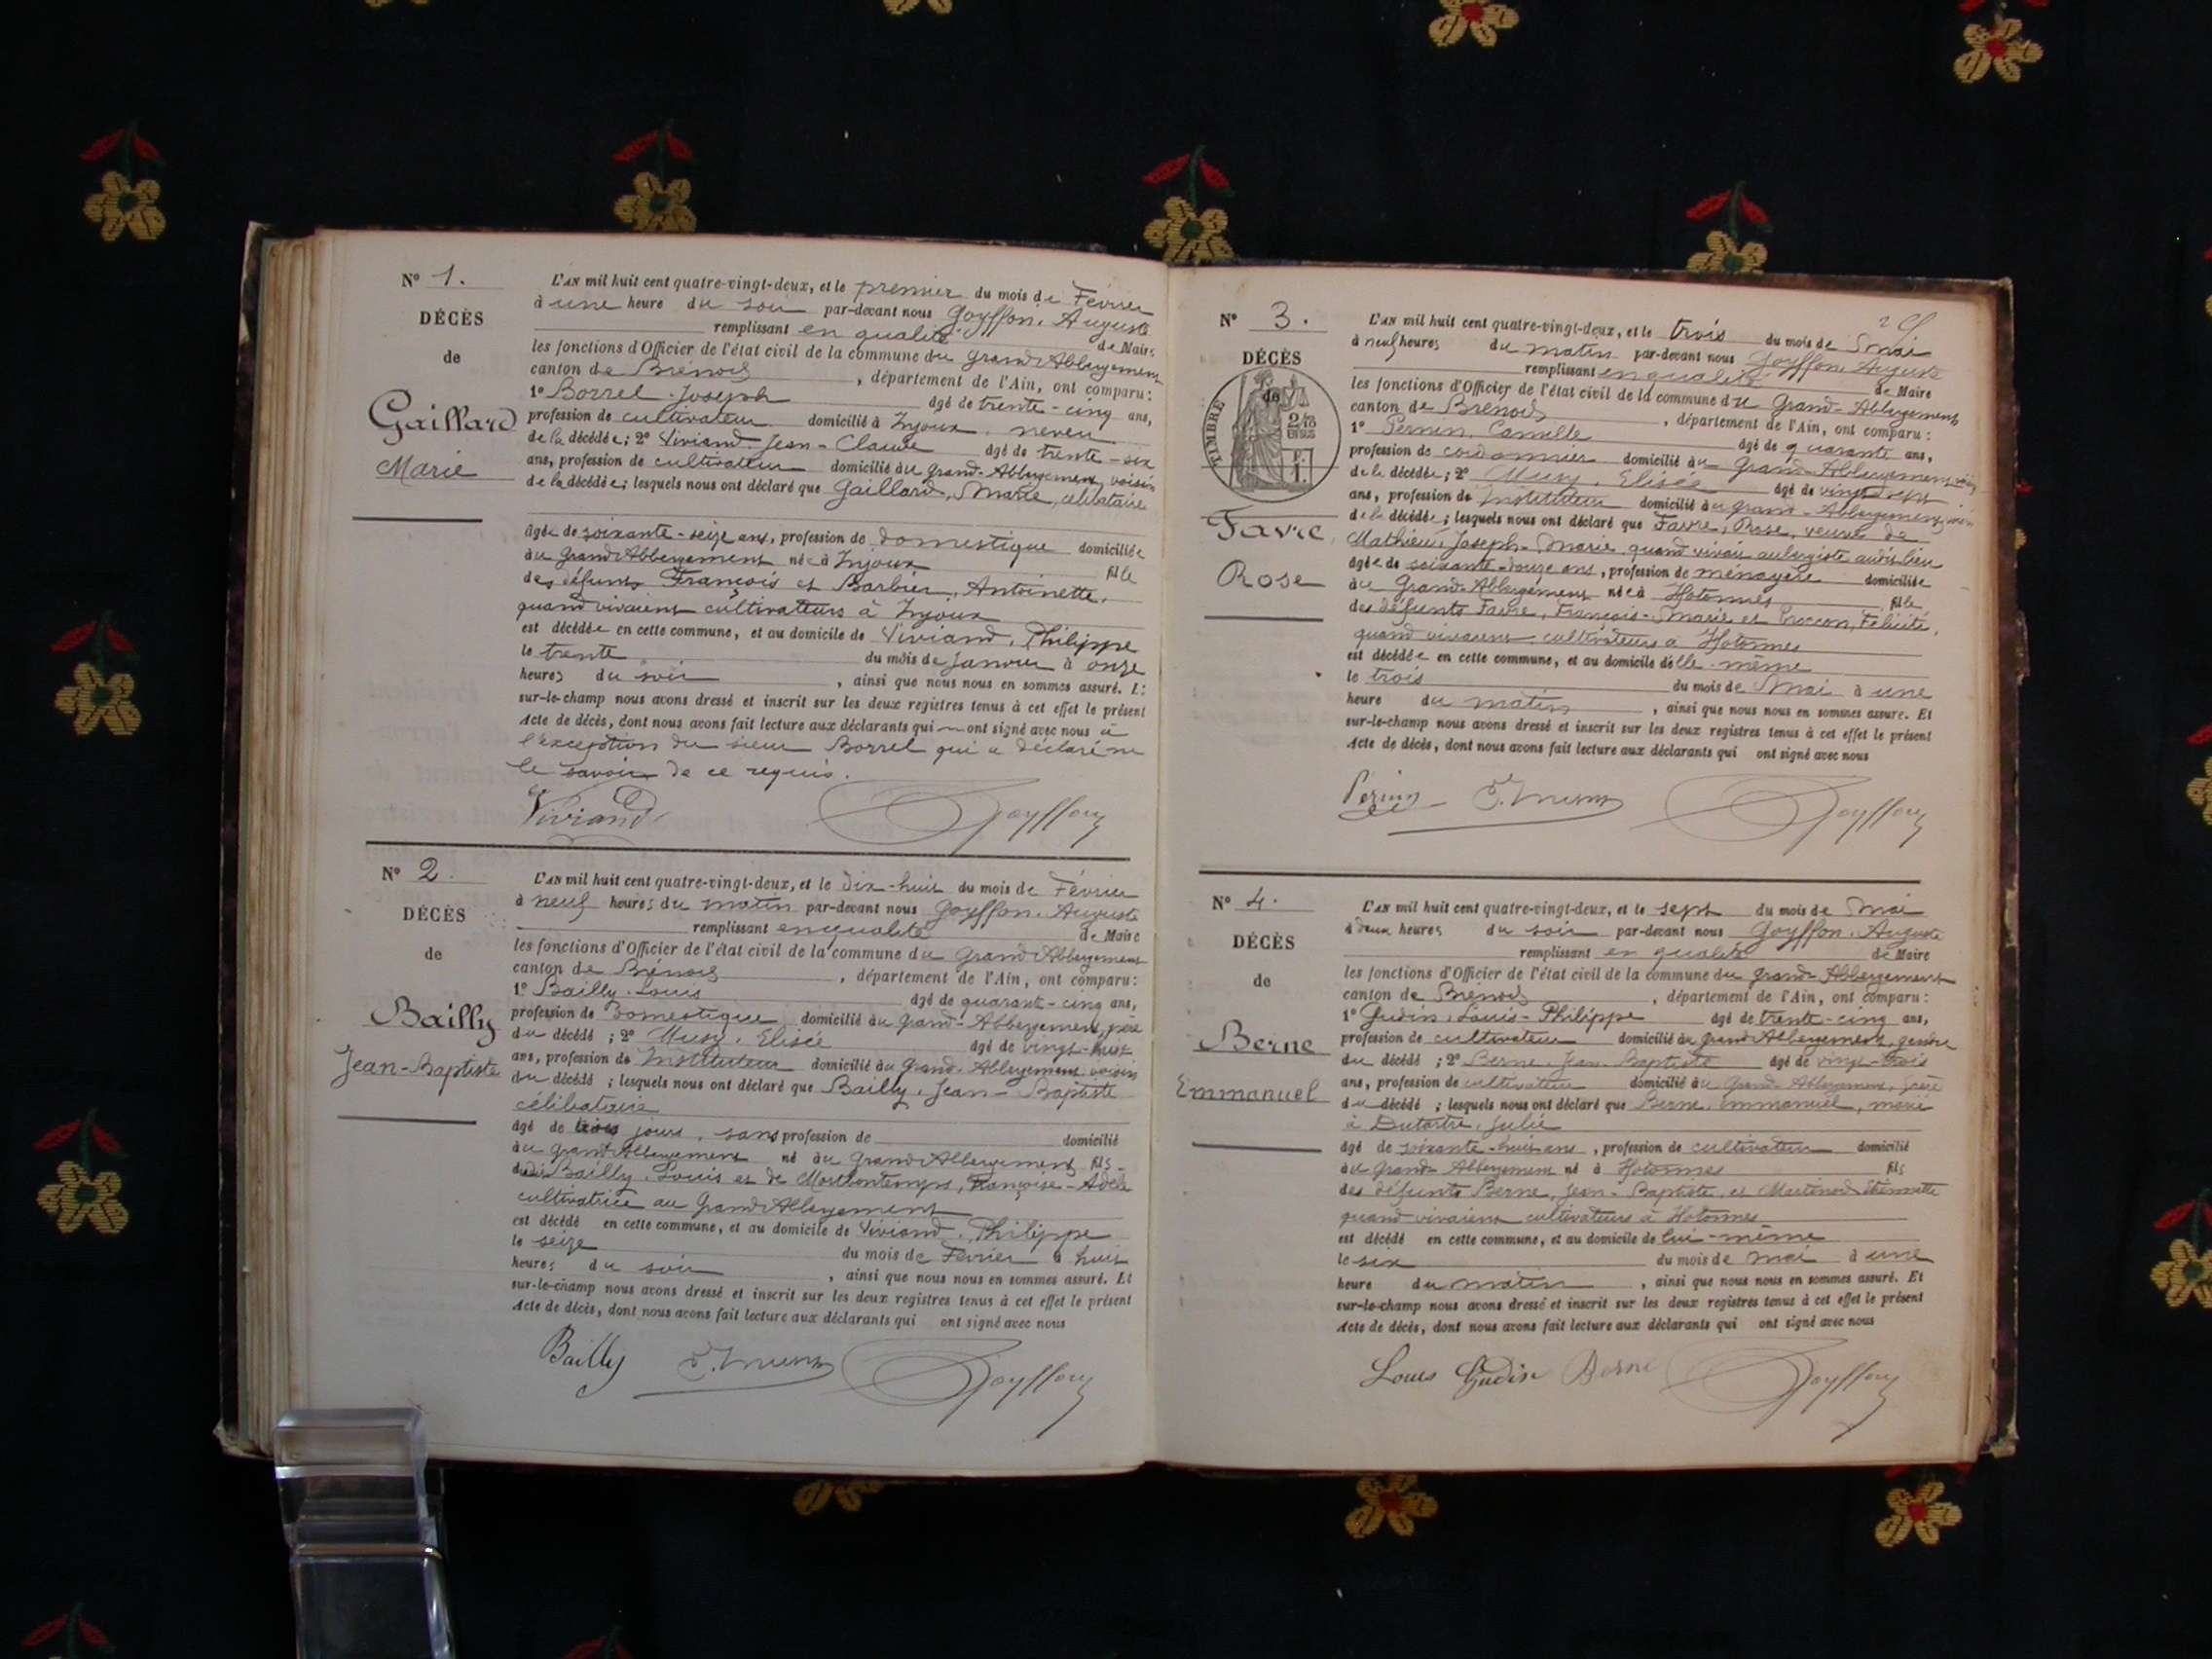 N° 1.
DÉCÈS
de
Gaillard
Marie
L'AN mil huit cent quatre-vingt-deux, et le premier du mois de Février
à une heure du soir par-devant nous Goyffon, Auguste
remplissant en qualité de Maire
les fonctions d'Officier de l'état civil de la commune du Grand Abbergement
canton de Brénod, département de l'Ain, ont comparu:
1° Borrel Joseph âgé de trente-cinq ans,
profession de cultivateur domicilié à Injoux, neveu
de la décédée; 2° Viviand Jean-Claude âgé de trente-six
ans, profession de cultivateur domicilié au Grand-Abbergement, voisin
de la décédée; lesquels nous ont déclaré que Gaillard, Marie, célibataire
âgée de soixante-seize ans, profession de domestique domiciliée
au Grand Abbergement née à Injoux fille
des défunts François et Barbier, Antoinette,
quand vivaient cultivateurs à Injoux
est décédée en cette commune, et au domicile de Viviand, Philippe
le trente du mois de Janvier à onze
heures du soir, ainsi que nous nous en sommes assuré. Et
sur-le-champ nous avons dressé et inscrit sur les deux registres tenus à cet effet le présent
Acte de décès, dont nous avons fait lecture aux déclarants qui ont signé avec nous à
l'exception du sieur Borrel qui a déclaré ne
le savoir de ce requis.
Viviand Goyffon
N° 2.
DÉCÈS
de
Bailly
Jean-Baptiste
L'AN mil huit cent quatre-vingt-deux, et le dix-huit du mois de Février
à neuf heures du matin par-devant nous Goyffon, Auguste
remplissant en qualité de Maire
les fonctions d'Officier de l'état civil de la commune du Grand Abbergement
canton de Brénod, département de l'Ain, ont comparu:
1° Bailly Louis âgé de quarante-cinq ans,
profession de Domestique domicilié au Grand-Abbergement, père
du décédé; 2° Musy, Elisée âgé de vingt-huit
ans, profession de Instituteur domicilié au Grand-Abbergement voisin
du décédé; lesquels nous ont déclaré que Bailly, Jean-Baptiste
célibataire
âgé de trois jours, sans profession de domicilié
au Grand Abbergement né au Grand Abbergement fils
dudit Bailly, Louis et de Françoise-Adèle
cultivatrice au Grand Abbergement
est décédé en cette commune, et au domicile de Viviand, Philippe
le seize du mois de Février à huit
heures du soir, ainsi que nous nous en sommes assuré. Et
sur-le-champ nous avons dressé et inscrit sur les deux registres tenus à cet effet le présent
Acte de décès, dont nous avons fait lecture aux déclarants qui ont signé avec nous
Bailly E. Musy Goyffon
N° 3.
DÉCÈS
de
TIMBRE
2/10
EN SUS
Favre
Rose
L'AN mil huit cent quatre-vingt-deux, et le trois du mois de Mai
à neuf heures du matin par-devant nous Goyffon, Auguste
remplissant en qualité de Maire
les fonctions d'Officier de l'état civil de la commune du Grand-Abbergement
canton de Brénod, département de l'Ain, ont comparu:
1° Pernin, Camille âgé de quarante ans,
profession de cordonnier domicilié au Grand-Abbergement, voisin
de la décédée; 2° Musy, Elisée âgé de vingt-huit
ans, profession de Instituteur domicilié au Grand-Abbergement, voisin
de la décédée; lesquels nous ont déclaré que Favre, Rose, veuve de
Mathieu, Joseph-Marie, quand vivait aubergiste audit lieu
âgée de soixante-douze ans, profession de ménagère domiciliée
au Grand-Abbergement née à Hotonnes fille
des défunts Favre, François-Marie et Félicité,
quand vivaient cultivateurs à Hotonnes
est décédée en cette commune, et au domicile d'elle-même
le trois du mois de Mai à une
heure du matin, ainsi que nous nous en sommes assuré. Et
sur-le-champ nous avons dressé et inscrit sur les deux registres tenus à cet effet le présent
Acte de décès, dont nous avons fait lecture aux déclarants qui ont signé avec nous
Pernin E. Musy Goyffon
N° 4.
DÉCÈS
de
Berne
Emmanuel
L'AN mil huit cent quatre-vingt-deux, et le sept du mois de Mai
à deux heures du soir par-devant nous Goyffon, Auguste
remplissant en qualité de Maire
les fonctions d'Officier de l'état civil de la commune du Grand-Abbergement
canton de Brénod, département de l'Ain, ont comparu:
1° Gudin, Louis-Philippe âgé de trente-cinq ans,
profession de cultivateur domicilié au Grand-Abbergement, gendre
du décédé; 2° Berne, Jean-Baptiste âgé de vingt-trois
ans, profession de cultivateur domicilié au Grand Abbergement,
du décédé; lesquels nous ont déclaré que Berne, Emmanuel, marié
à Dutartre, Julie
âgé de soixante-huit ans, profession de cultivateur domicilié
au Grand-Abbergement né à Hotonnes fils
des défunts Berne, Jean-Baptiste et Martinod Etiennette
quand vivaient cultivateurs à Hotonnes
est décédé en cette commune, et au domicile de lui-même
le six du mois de mai à une
heure du matin, ainsi que nous nous en sommes assuré. Et
sur-le-champ nous avons dressé et inscrit sur les deux registres tenus à cet effet le présent
Acte de décès, dont nous avons fait lecture aux déclarants qui ont signé avec nous
Louis Gudin Berne Goyffon